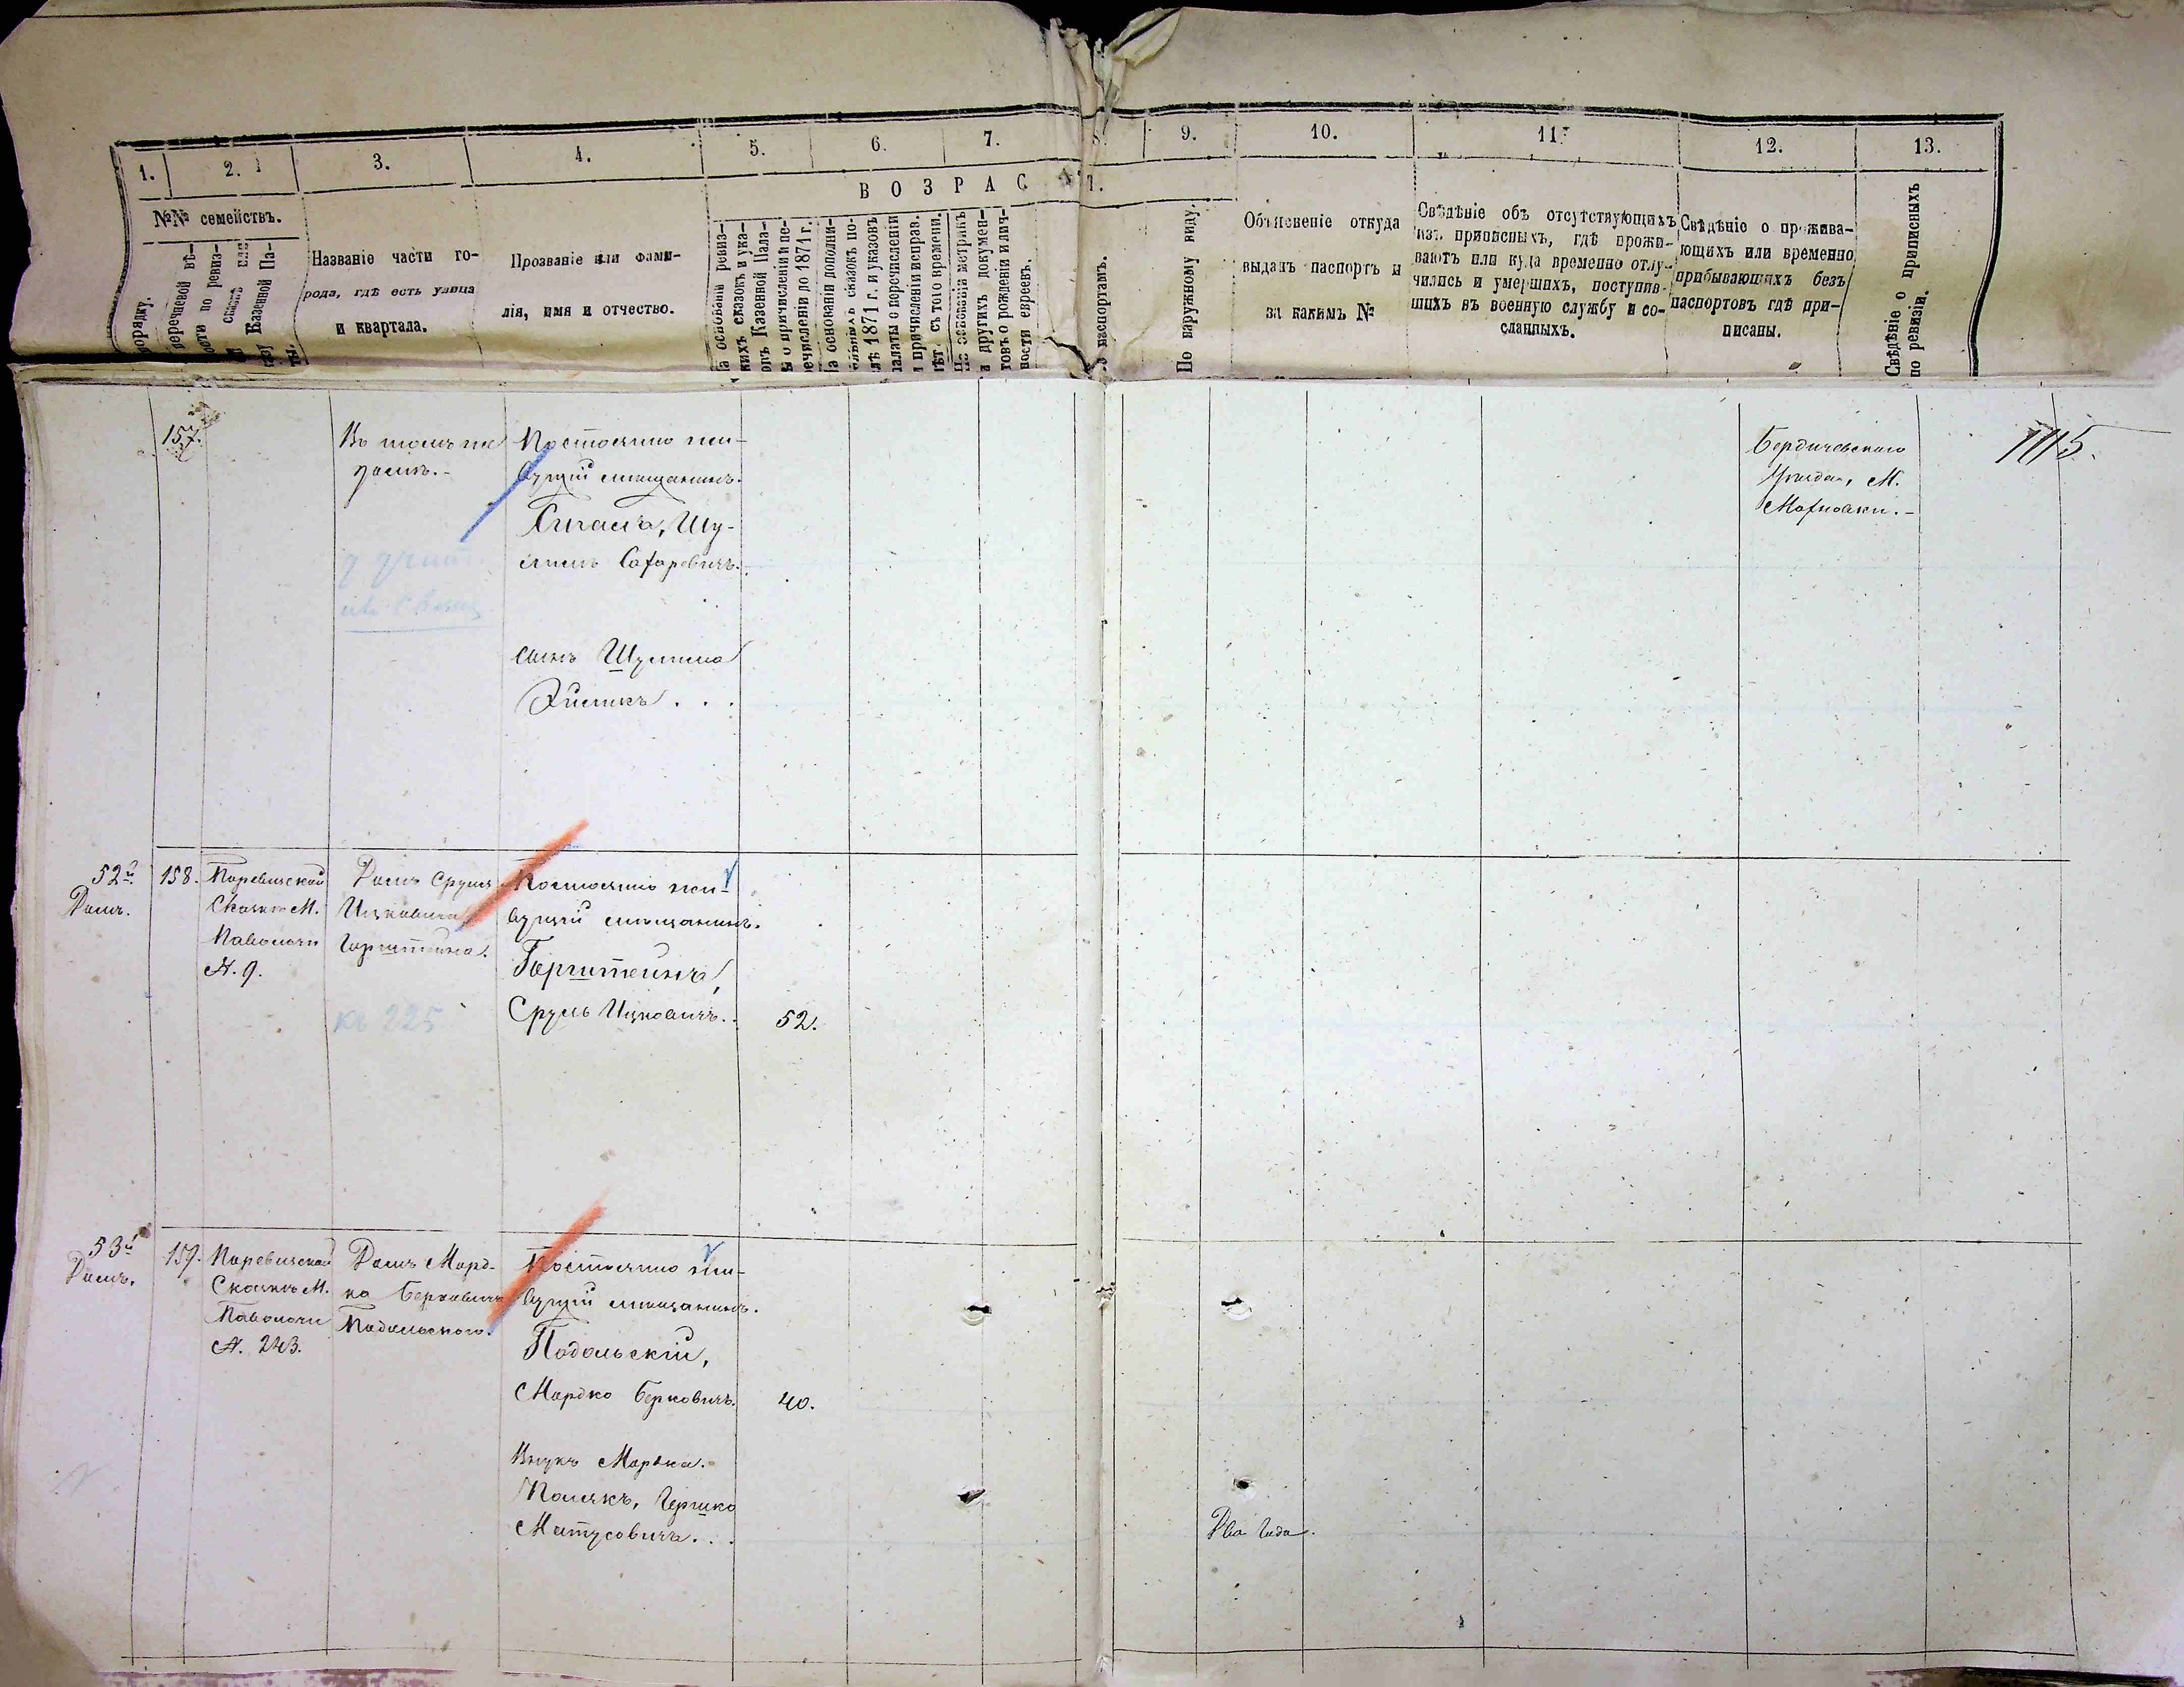 1. 2. 3. 4. 5. 6. 7. 8. 9. 10. 11. 12. 13.
В О З Р А С Т.
№№ семействъ.
порядку.
перечневой вѣ-
мости по ревиз-
Казенной Па-
ты.
Названіе части го-
рода, гдѣ есть улица
и квартала.
Прозваніе или фами-
лія, имя и отчество.
На основаніи ревиз-
кихъ сказокъ и ука-
овъ Казенной Пала-
ы о причисленіи и пе-
речисленіи до 1871 г.
На основаніи дополни-
ельныхъ сказокъ по-
лѣ 1871 г. и указовъ
палаты о перечисленіи
и причисленіи исправ.
лѣт. съ того времени.
По основаніи метрикъ
и другихъ докумен-
товъ о рожденіи и лич-
ности евреевъ.
о паспортамъ.
По наружному виду.
Объясненіе откуда
выданъ паспортъ и
за какимъ №
Свѣдѣніе объ отсутствующихъ
изъ приписныхъ, гдѣ прожи-
ваютъ или куда временно отлу-
чились и умершихъ, поступив-
шихъ въ военную службу и со-
сланныхъ.
Свѣдѣніе о прожива-
ющихъ или временно
прибывающихъ безъ
паспортовъ гдѣ при-
писаны.
Свѣдѣніе о приписныхъ
по ревизіи.
157.
Въ томъ же
домѣ.-
Постоянно жи-
вущій мѣщанинъ.
Шу-
лимъ
сынъ Шулима
Бердичевскаго
Уѣзда, М.
Махновки.-
1115.
52й
Домъ.
158.
Ск М.
Паволочи
N. 9.
Домъ Сруля
Ицковича
Герштейна.
къ 225
Постоянно жи-
вущій мѣщанинъ.
Герштейнъ,
Сруль Ицковичъ.
52.
53й
Домъ.
159.
Ск М.
Паволочи
N. 243.
Домъ Морд-
ка Берковича
Подольскаго.
Постоянно жи-
вущій мѣщанинъ.
Подольскій,
Мордко Берковичъ.
40.
Внукъ Мордка.
Полякъ, Гершко
Матусовичъ...
Два года.